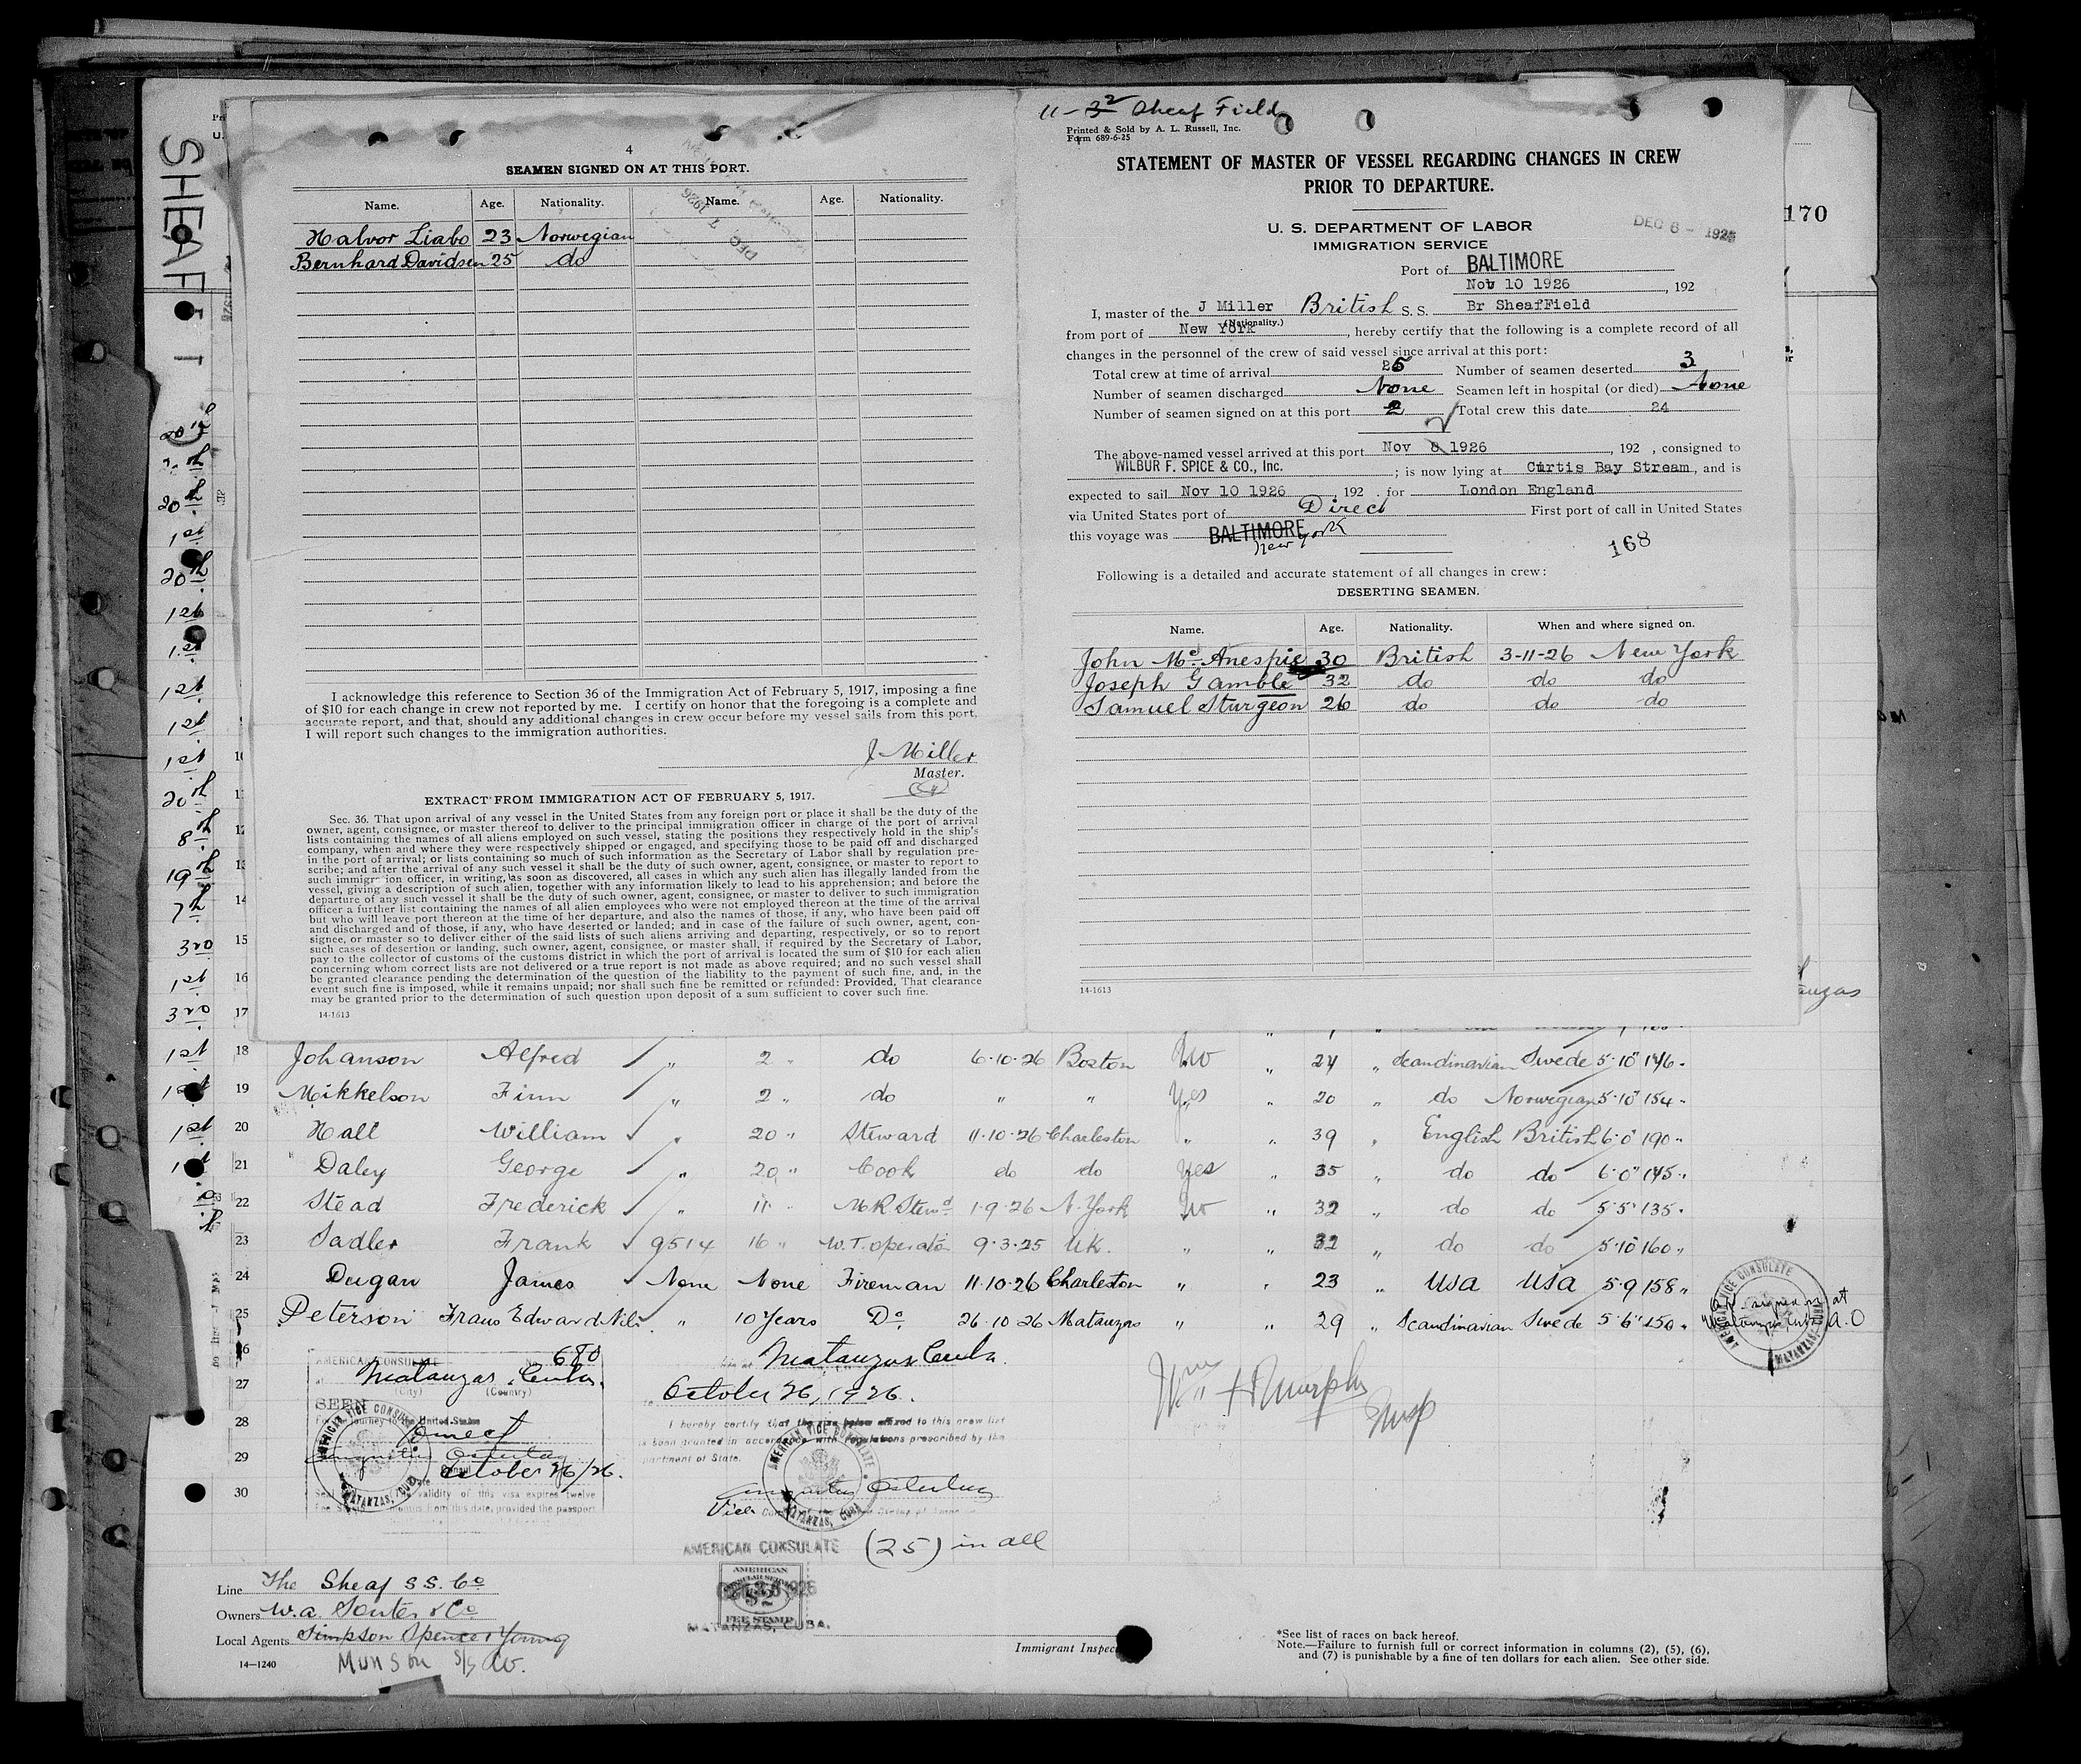 SHEAF
4
SEAMEN SIGNED ON AT THIS PORT.
Name. Age. Nationality. Name. Age. Nationality.
Halvor Liabo 23 Norwegian
Bernhard Davidsen 25 do
DEC 7 1926
I acknowledge this reference to Section 36 of the Immigration Act of February 5, 1917, imposing a fine
of $10 for each change in crew not reported by me. I certify on honor that the foregoing is a complete and
accurate report, and that, should any additional changes in crew occur before my vessel sails from this port,
I will report such changes to the immigration authorities.
J Miller
Master.
EXTRACT FROM IMMIGRATION ACT OF FEBRUARY 5, 1917.
Sec. 36. That upon arrival of any vessel in the United States from any foreign port or place it shall be the duty of the
owner, agent, consignee, or master thereof to deliver to the principal immigration officer in charge of the port of arrival
lists containing the names of all aliens employed on such vessel, stating the positions they respectively hold in the ship's
company, when and where they were respectively shipped or engaged, and specifying those to be paid off and discharged
in the port of arrival; or lists containing so much of such information as the Secretary of Labor shall by regulation pre-
scribe; and after the arrival of any such vessel it shall be the duty of such owner, agent, consignee, or master to report to
such immigr ion officer, in writing, as soon as discovered, all cases in which any such alien has illegally landed from the
vessel, giving a description of such alien, together with any information likely to lead to his apprehension; and before the
departure of any such vessel it shall be the duty of such owner, agent, consignee, or master to deliver to such immigration
officer a further list containing the names of all alien employees who were not employed thereon at the time of the arrival
but who will leave port thereon at the time of her departure, and also the names of those, if any, who have been paid off
and discharged and of those, if any, who have deserted or landed; and in case of the failure of such owner, agent, con-
signee, or master so to deliver either of the said lists of such aliens arriving and departing, respectively, or so to report
such cases of desertion or landing, such owner, agent, consignee, or master shall, if required by the Secretary of Labor,
pay to the collector of customs of the customs district in which the port of arrival is located the sum of $10 for each alien
concerning whom correct lists are not delivered or a true report is not made as above required; and no such vessel shall
be granted clearance pending the determination of the question of the liability to the payment of such fine, and, in the
event such fine is imposed, while it remains unpaid; nor shall such fine be remitted or refunded: Provided, That clearance
may be granted prior to the determination of such question upon deposit of a sum sufficient to cover such fine.
14-1613
11-32 Sheaf Field
Printed & Sold by A. L. Russell, Inc.
Form 689-6-25
STATEMENT OF MASTER OF VESSEL REGARDING CHANGES IN CREW
PRIOR TO DEPARTURE.
U. S. DEPARTMENT OF LABOR
IMMIGRATION SERVICE
DEC 8 - 1926
170
Port of BALTIMORE
Nov 10 1926, 192
I, master of the J Miller British S. S. Br SheafField
(Nationality.)
from port of New York, hereby certify that the following is a complete record of all
changes in the personnel of the crew of said vessel since arrival at this port:
Total crew at time of arrival 25 Number of seamen deserted 3
Number of seamen discharged None Seamen left in hospital (or died) None
Number of seamen signed on at this port 2 Total crew this date 24
The above-named vessel arrived at this port Nov 8 1926, 192 , consigned to
WILBUR F. SPICE & CO., Inc.; is now lying at Curtis Bay Stream, and is
expected to sail Nov 10 1926, 192 . for London England
via United States port of Direct First port of call in United States
this voyage was BALTIMORE New York
168
Following is a detailed and accurate statement of all changes in crew:
DESERTING SEAMEN.
Name. Age. Nationality. When and where signed on.
John McAnespie 30 British 3-11-26 New York
Joseph Gamble 32 do do do
Samuel Sturgeon 26 do do do
14-1613
18 Johanson Alfred " 2 " do 6.10.26 Boston No " 24 " Scandinavian Swede 5.10" 146
19 Mikkelson Finn " 2 " do " " Yes " 20 " do Norwegian 5.10" 154 "
20 Hall William " 20 " Steward 11.10.26 Charleston " " 39 " English British 6.0" 190 "
21 Daley George " 20 " Cook do do Yes " 35 " do do 6.0" 145 "
22 Stead Frederick " 11 " M R Stewd 1.9.26 N. York No " 32 " do do 5.5" 135 "
23 Sadler Frank 9514 16 " W. T. operator 9.3.25 UK. " " 32 " do do 5.10 160 "
24 Dugan James None None Fireman 11.10.26 Charleston " " 23 " USA USA 5.9 158 "
25 Peterson Frans Edward Nils " 10 Years Do 26.10.26 Matanzas " " 29 " Scandinavian Swede 5.6" 150 "
signed on at
Matanzas, Cuba A.O
AMERICAN VICE CONSULATE
MATANZAS, CUBA
26
27
28
29
30
AMERICAN CONSULATE 680
Matanzas, Cuba.
(City) (Country)
SEEN
For the journey to the United States
Direct
Augustus Ostertag
Consul
Date October 26/26.
validity of this visa expires twelve
months from this date, provided the passport
Matanzas Cuba.
October 26, 1926.
I hereby certify that the visa below affixed to this crew list
is been granted in accordance with regulations prescribed by the
partment of State.
Vice
AMERICAN VICE CONSULATE
MATANZAS, CUBA
AMERICAN CONSULATE (25) in all
AMERICAN
CONSULAR SERVICE
$2
FEE STAMP
MATANZAS, CUBA.
Wm H Murphy
Insp
Line The Sheaf S S. Co
Owners W. A. Souter & Co
Local Agents Simpson Spence & Young
Munson S/S Co.
14—1240
Immigrant Inspec
*See list of races on back hereof.
Note.—Failure to furnish full or correct information in columns (2), (5), (6),
and (7) is punishable by a fine of ten dollars for each alien. See other side.